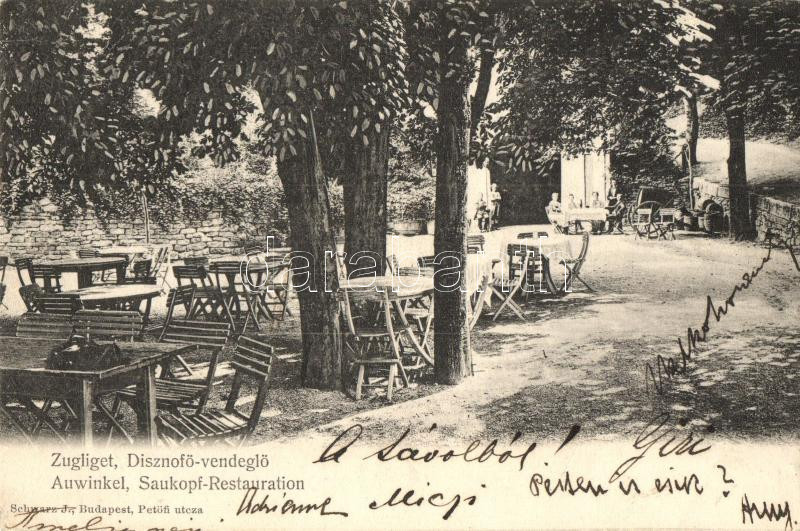 darabanth
Zugliget, Disznofö-vendeglö
Auwinkel, Saukopf-Restauration
Schwarz J., Budapest, Petöfi utcza
A távolból!
Giri
Adrienne
Miczi
Pesten is esik?